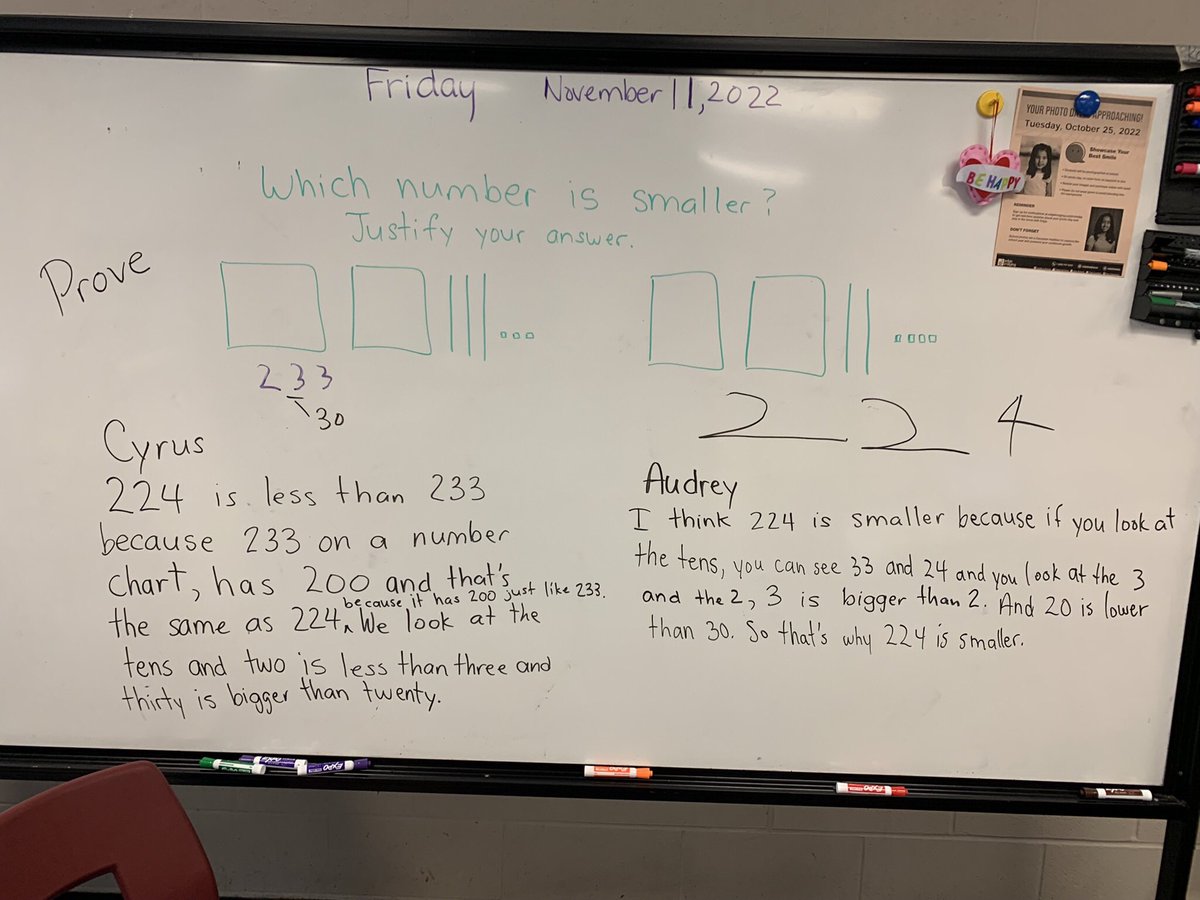 Friday November 11, 2022
Which number is smaller?
Justify your answer.
Prove
233
30
224
Cyrus
224 is less than 233
because 233 on a number
chart, has 200 and that's
because it has 200 just like 233.
the same as 224 ^ We look at the
tens and two is less than three and
thirty is bigger than twenty.
Audrey
I think 224 is smaller because if you look at
the tens, you can see 33 and 24 and you look at the 3
and the 2, 3 is bigger than 2. And 20 is lower
than 30. So that's why 224 is smaller.
BE HAPPY
YOUR PHOTO APPROACHING!
Tuesday, October 25, 2022
Showcase Your
Best Smile
REMINDER
DON'T FORGET
EXPO
EXPO